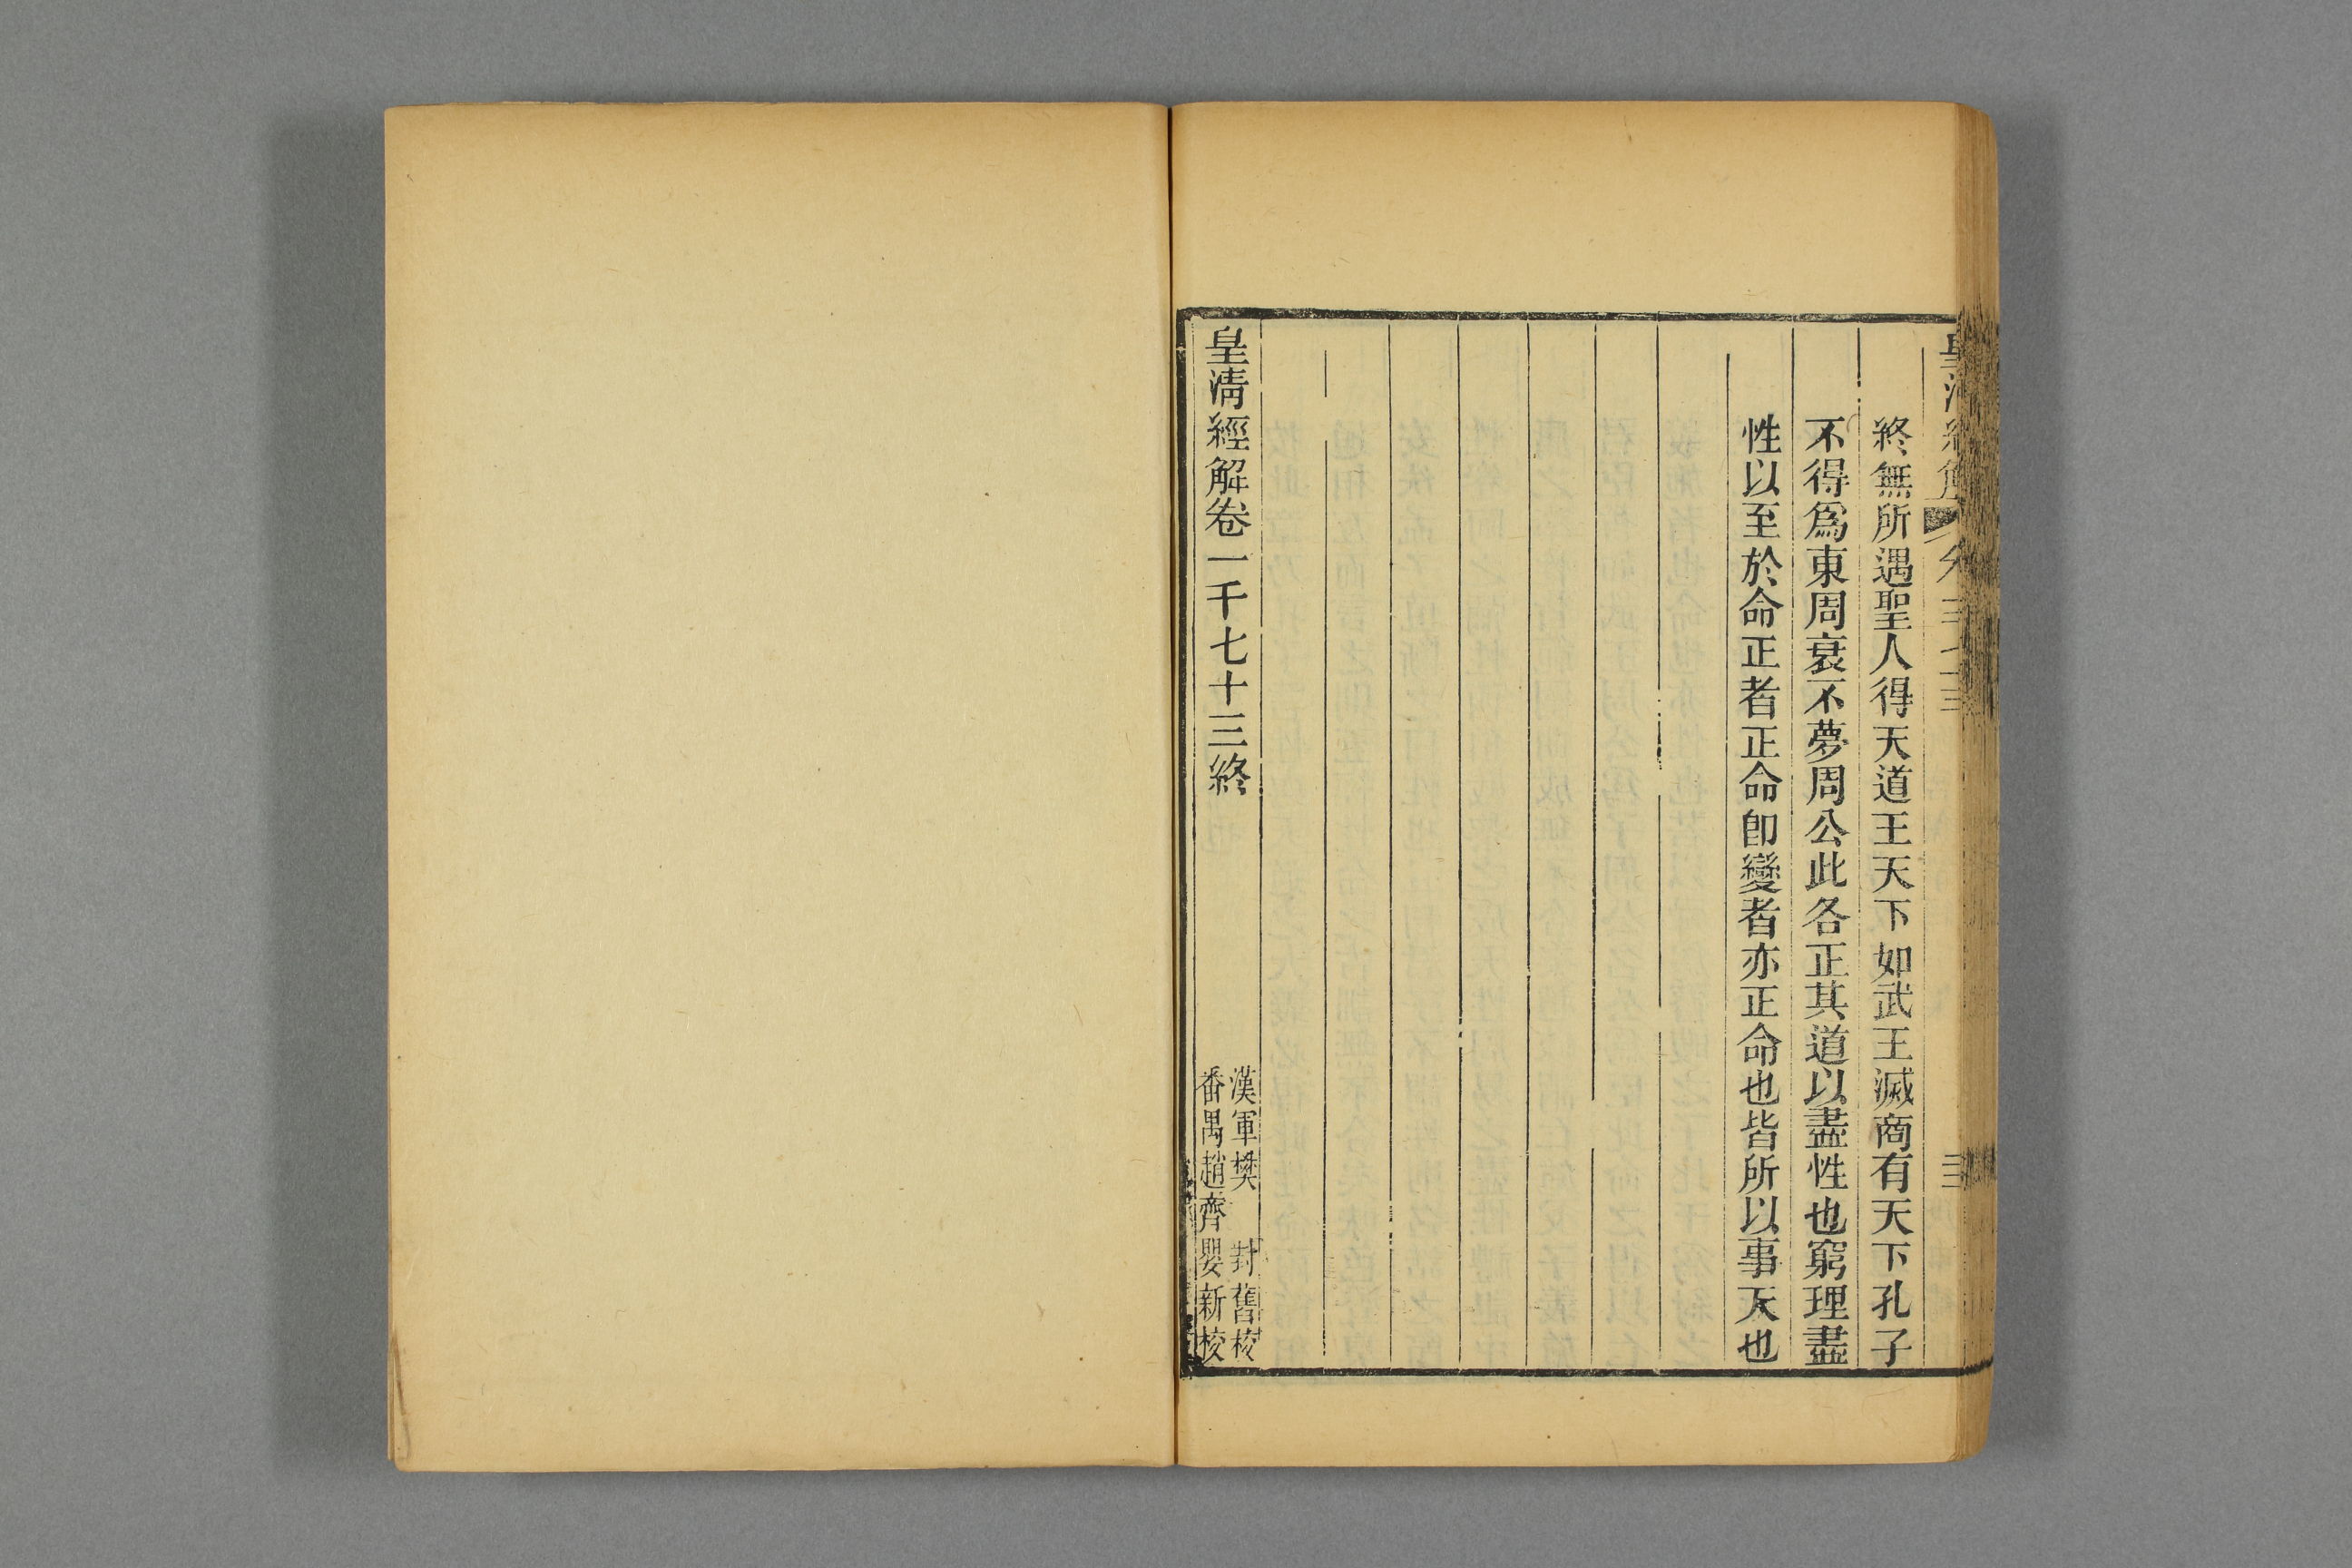 終無所遇聖人得天道王天下如武王滅商有天下孔子
不得爲東周衰不夢周公此各正其道以盡性也窮理盡
性以至於命正者正命卽變者亦正命也皆所以事天也
皇清經解卷一千七十三終
漢軍樊封舊校
番禺趙齊嬰新校